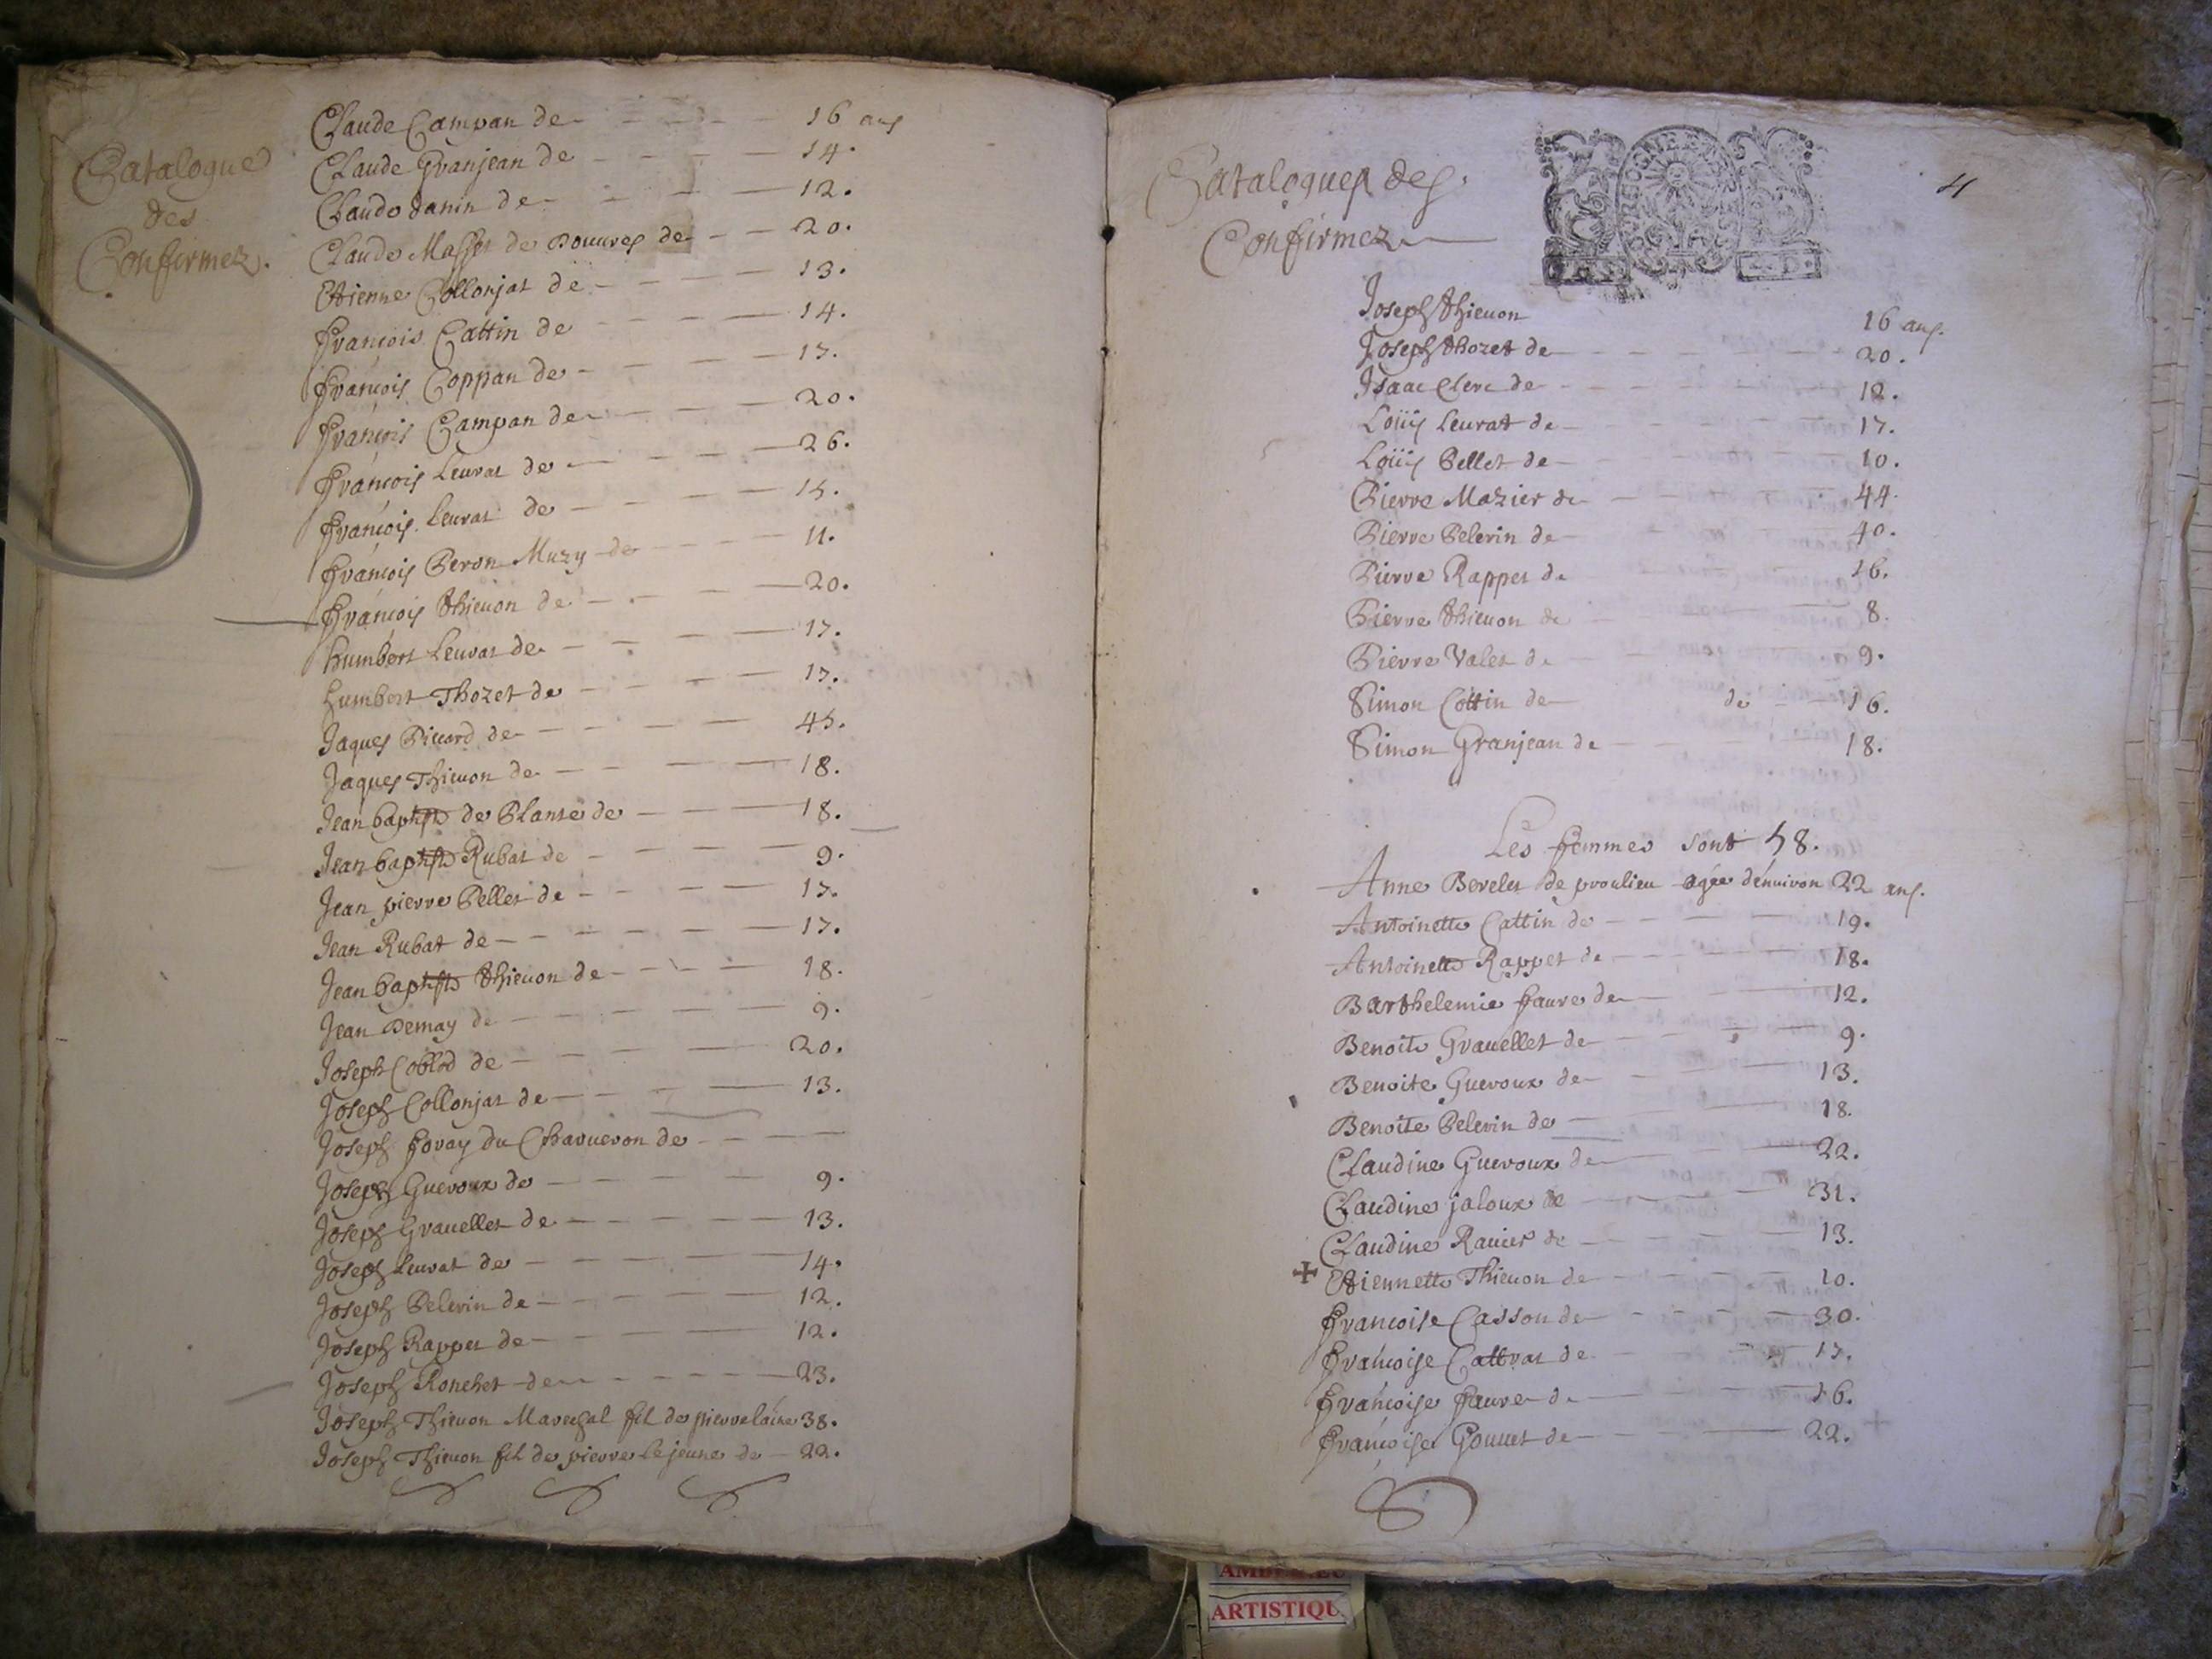 Catalogue
des
Confirmez.
Claude Campan de 16 ans
Claude Granjean de 14.
Claude Janin de 12.
Claude Masset de Douvres de 20.
Etienne Collonjat de 13.
françois Cattin de 14.
françois Coppan de 17.
françois Campan de 20.
françois Leurat de 26.
françois Leurat de 15.
françois Peron Muzy de 11.
françois thieuon de 20.
humbert Leurat de 17.
humbert Thozet de 17.
Jaques Piccard de 45.
Jaques Thieuon de 18.
Jean baptiste de Plante de 18.
Jean baptiste Rubat de 9.
Jean pierre Pellet de 17.
Jean Rubat de 17.
Jean baptiste thieuon de 18.
Jean Demay de 9.
Joseph Coblod de 20.
Joseph Collonjat de 13.
Joseph foray du Charueron de
Joseph Gueroux de 9.
Joseph Grauellet de 13.
Joseph Leurat de 14.
Joseph Pelerin de 12.
Joseph Rappet de 12.
Joseph Ronchet de 23.
Joseph Thieuon Marechal fil de pierre laine 38.
Joseph Thieuon fil de pierre le jeune de 22.
Catalogues des
Confirmez
4
Joseph thieuon 16 ans.
Joseph thozet de 20.
Isaac Clerc de 12.
Loüis Leurat de 17.
Loüis Pellet de 10.
Pierre Mazier de 44.
Pierre Pelerin de 40.
Pierre Rappet de 16.
Pierre thieuon de 8.
Pierre Valet de 9.
Simon Cottin de de 16.
Simon Granjean de 18.
Les femmes sont 58.
Anne Berelet de proulieu agée d'enuiron 22 ans.
Antoinette Cattin de 19.
Antoinette Rappet de 18.
Barthelemie faure de 12.
Benoite Grauellet de 9.
Benoite Gueroux de 13.
Benoite Pelerin de 18.
Claudine Gueroux de 22.
Claudine jaloux de 31.
Claudine Rauier de 13.
Etiennette Thieuon de 10.
francoise Casson de 30.
françoise Cattrat de 17.
françoise faure de 16.
françoise Gouuet de 22.
ARTISTIQU